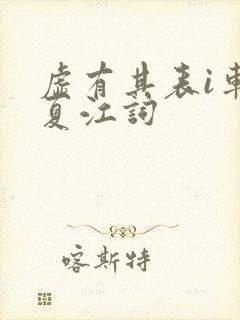 虚有其表i車
夏江詞
喀斯特